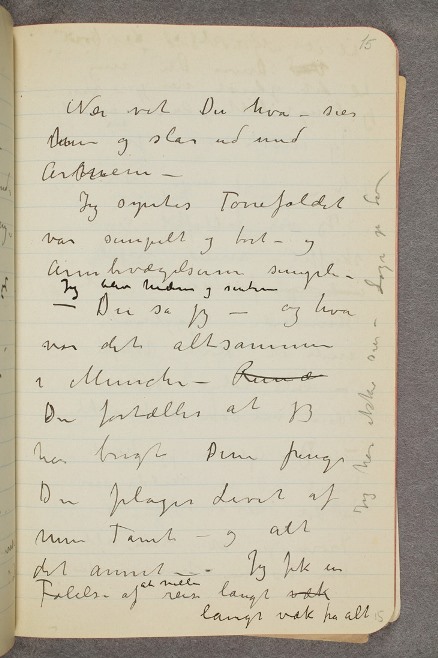 15
Nei vet Du hva – sier
hun og slår ud med
Armene –
Jeg syntes Tonefaldet
var simpelt og bort – og
Armbevægelserne simple –
Jeg blev heden og sintere
– Du sa jeg – og hva
var det altsammen
i Munchen – Rund
Du fortælles at jeg
har brugt Dine penge
Du plager Livet af
min Tante – og alt
det annet – Jeg fik en
Følelse af at ville reise langt væk
langt væk fra alt
Jeg har ikke sier – hun
15